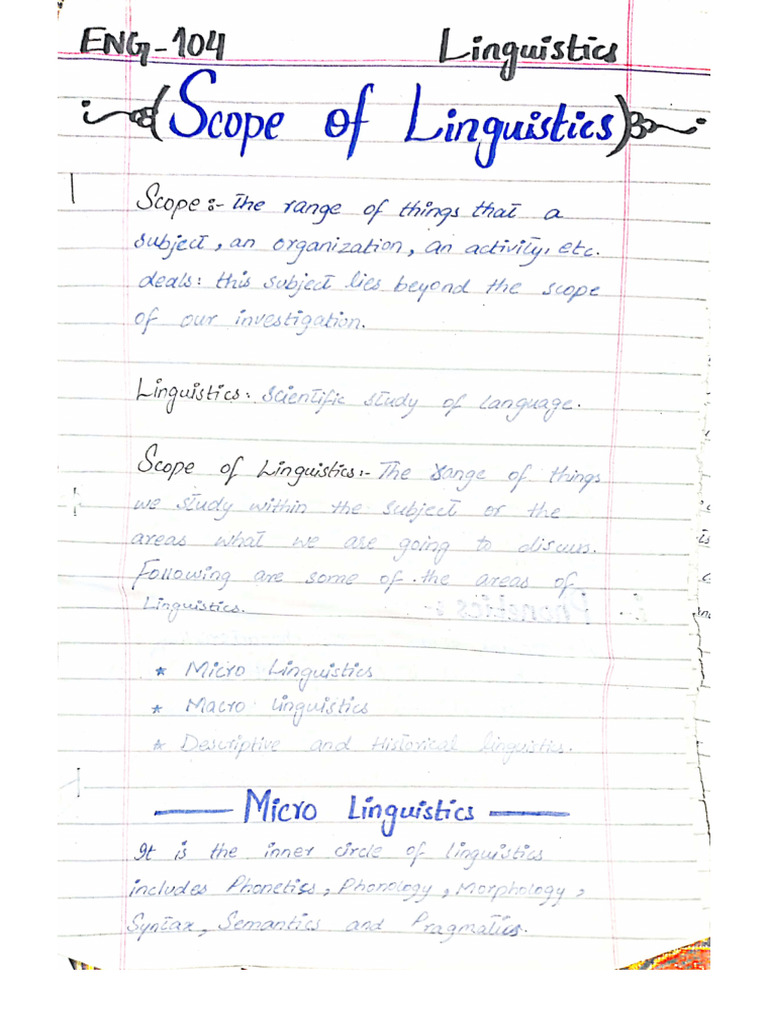 ENG-104 Linguistics
(Scope of Linguistics)
Scope:- The range of things that a
subject, an organization, an activity, etc.
deals: this subject lies beyond the scope
of our investigation.
Linguistics: Scientific study of language.
Scope of Linguistics:- The range of things
we study within the subject or the
areas what we are going to discuss.
Following are some of the areas of
Linguistics.
* Micro Linguistics
* Macro linguistics
* Descriptive and Historical linguistics.
— Micro Linguistics —
It is the inner circle of linguistics
includes Phonetics, Phonology, Morphology,
Syntax, Semantics and Pragmatics.